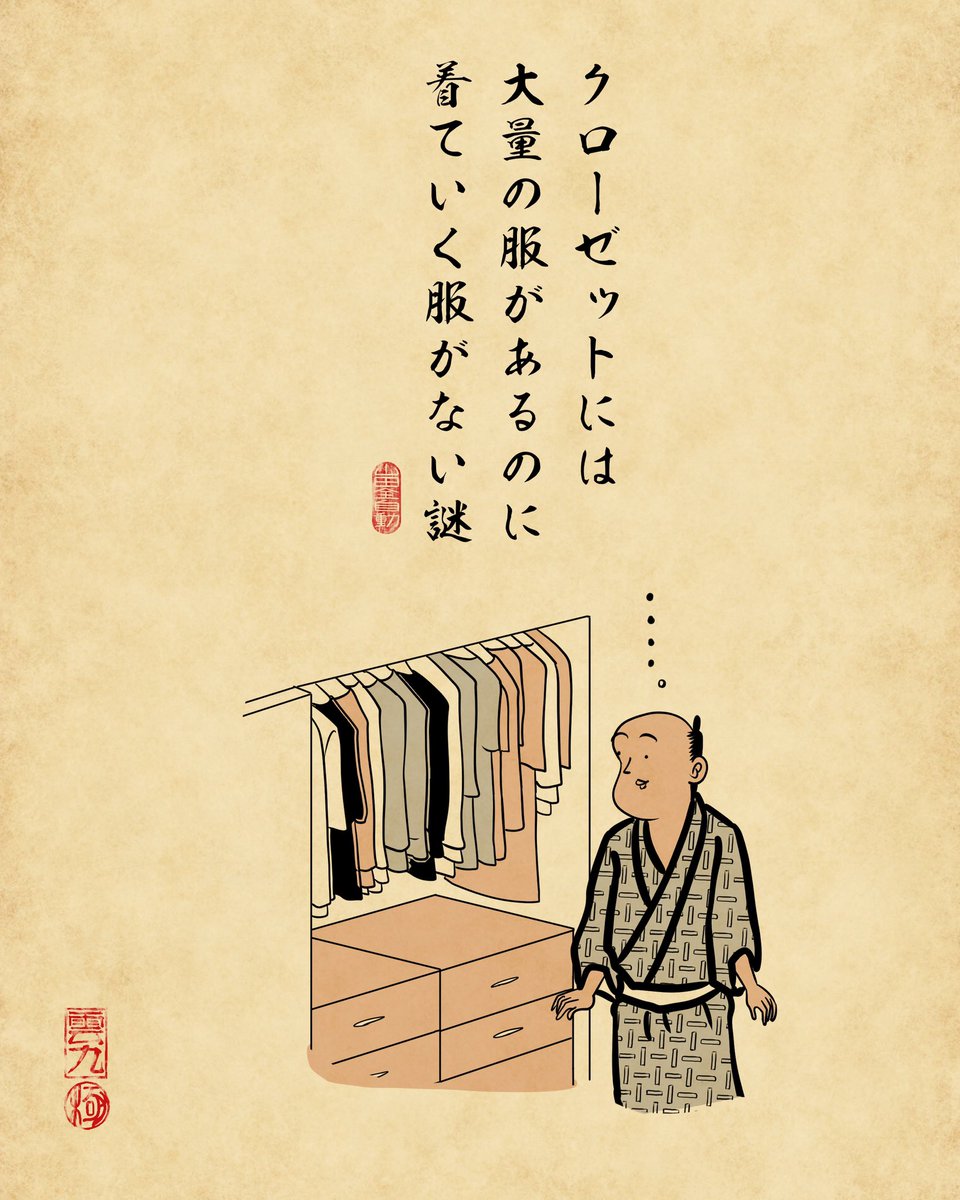 クローゼットには
大量の服があるのに
着ていく服がない謎